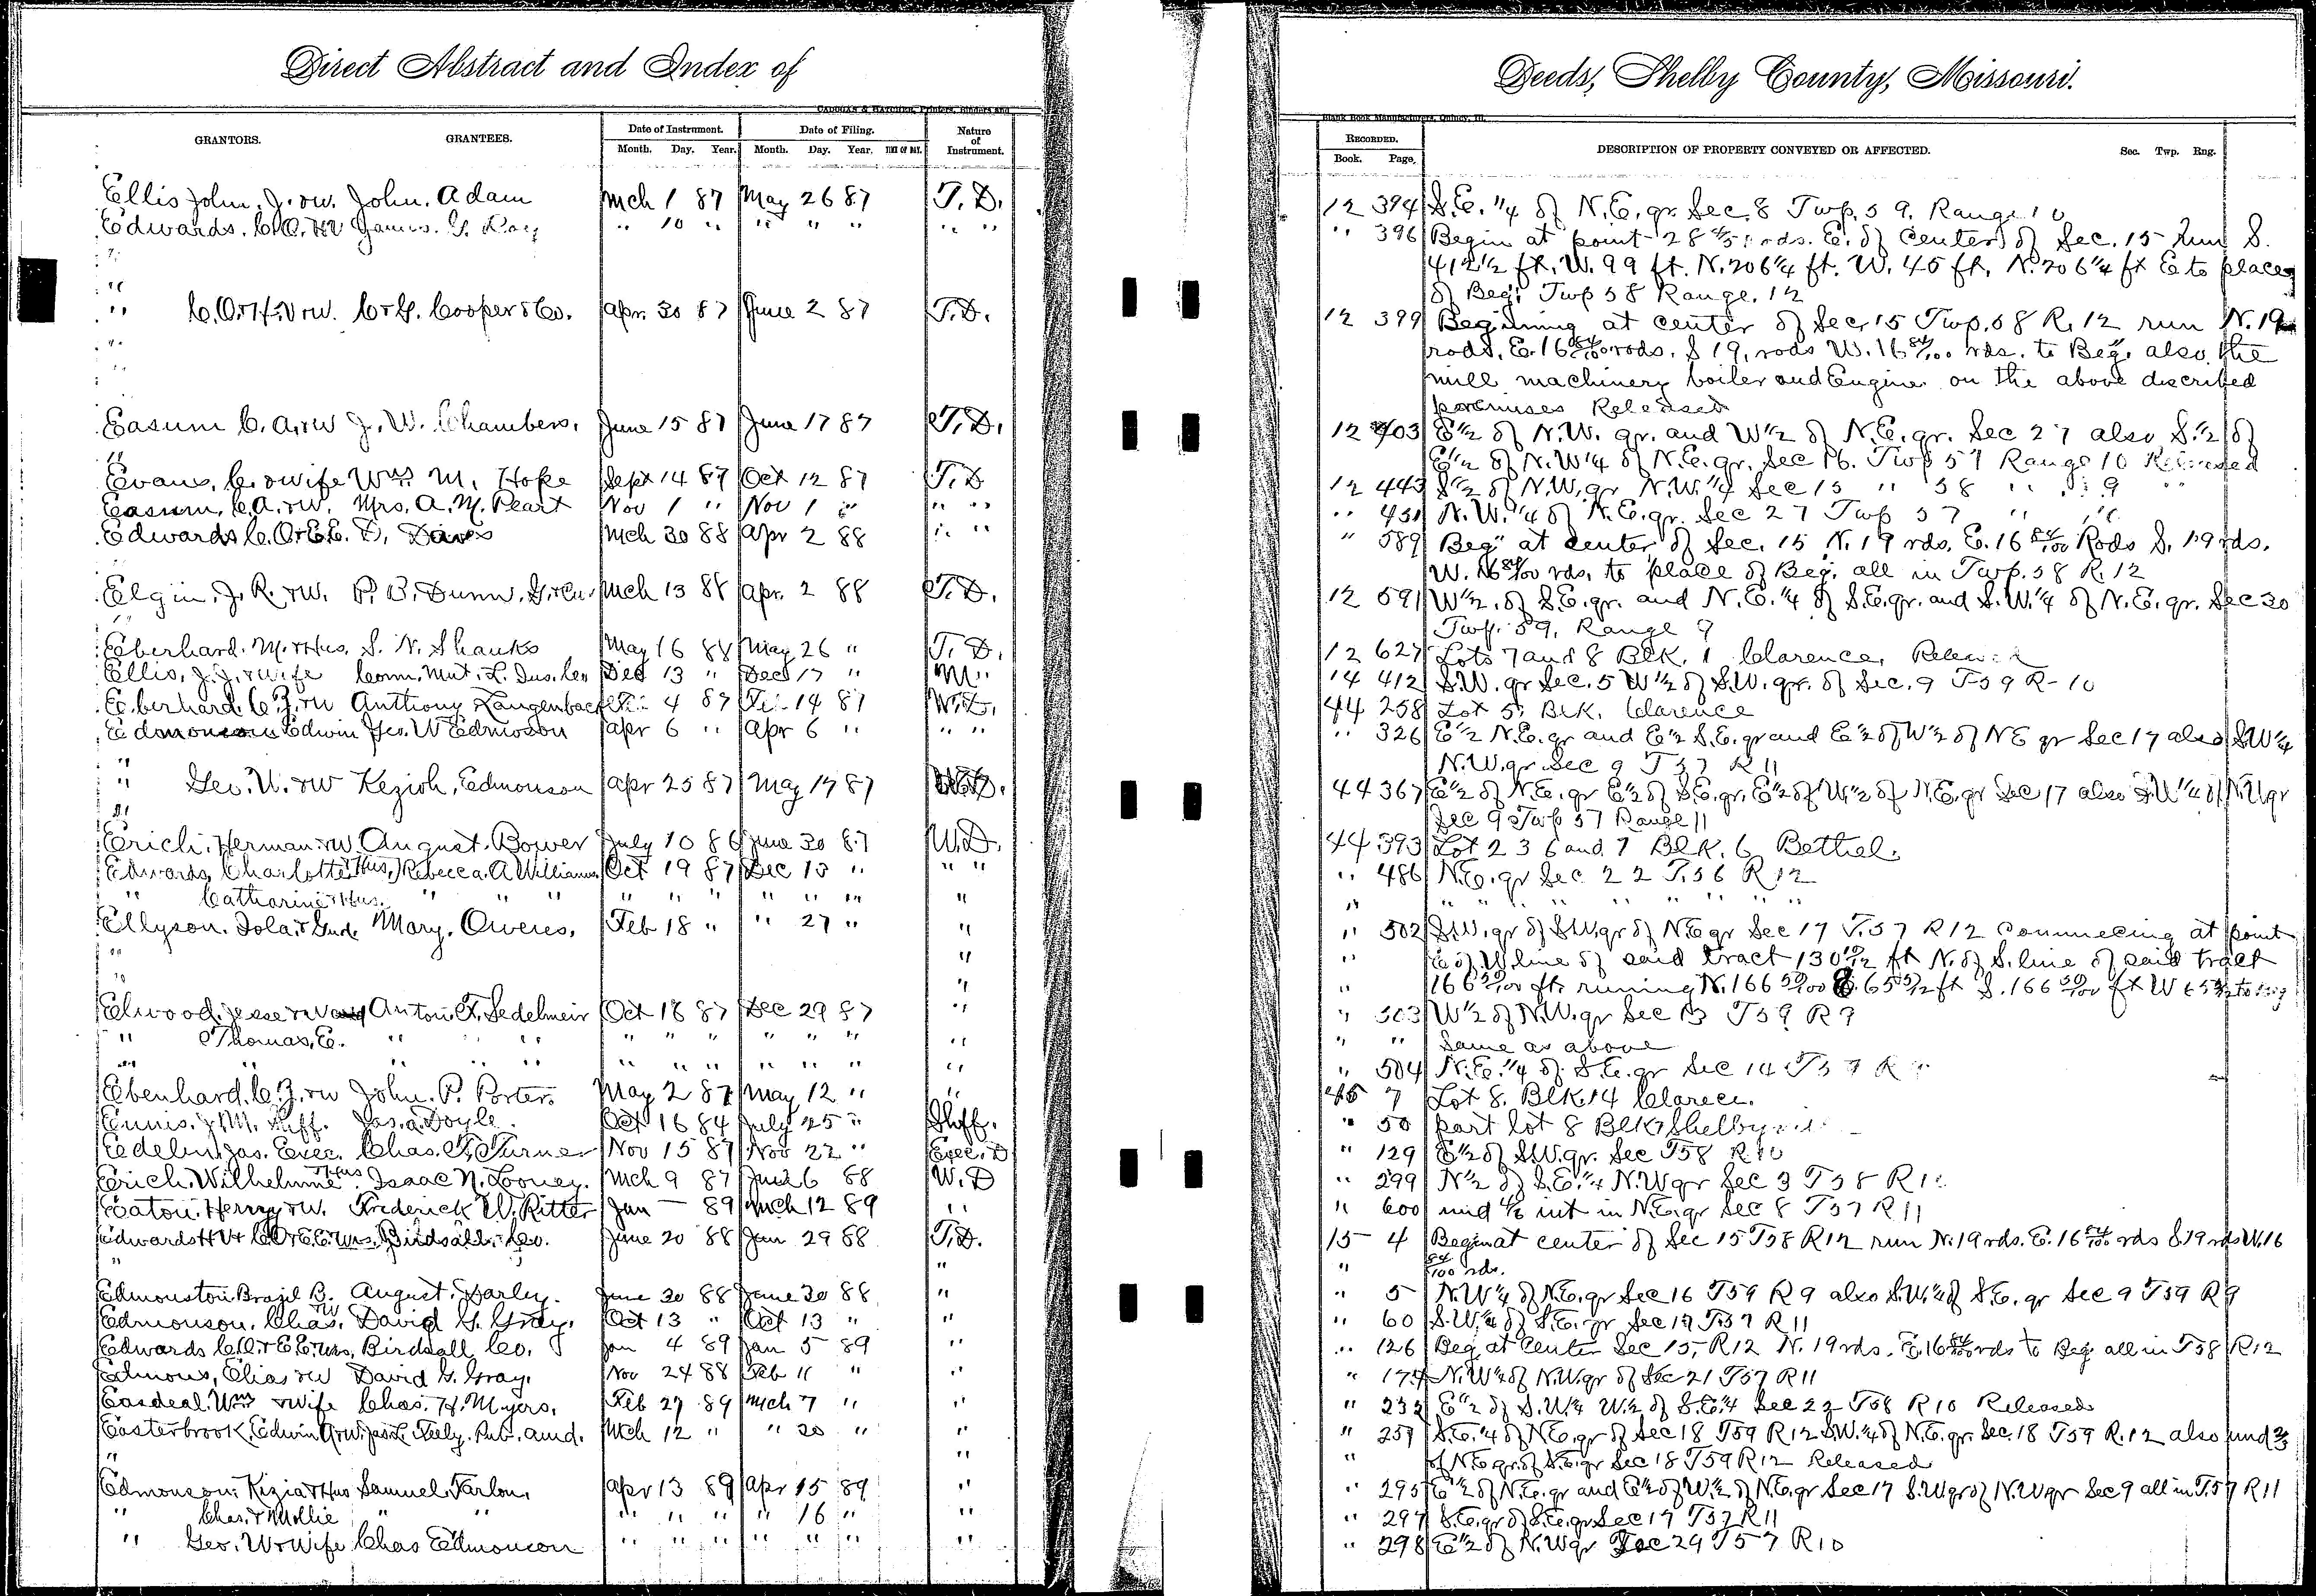 Direct Abstract and Index of
CADOGAN & HATCHER, Printers, Binders and
GRANTORS. GRANTEES. Date of Instrument. Date of Filing. Nature of Instrument.
Month. Day. Year. Month. Day. Year. TIME OF DAY.
Ellis John. J. & w. John. Adam Mch 1 87 May 26 87 T. D.
Edwards. C. O. H V James. G. Roy " 10 " " " " " "
"
"
" C. O. & H. V & w. C & G. Cooper & Co. Apr. 30 87 June 2 87 T. D.
"
"
Easum C. A. & w J. W. Chambers. June 15 87 June 17 87 T. D.
"
Evans, C. & wife Wm. M. Hope Sept 14 87 Oct 12 87 T. D
Easum, C. A. & w. Mrs. A. M. Peart Nov 1 " Nov 1 " " "
Edwards C. O. & E. E. D. Davis Mch 30 88 Apr 2 88 " "
Elgin. J. R. & w. P. B. Dunn. G. & Cu. Mch 13 88 Apr. 2 88 T. D.
"
Eberhard. M. & Hus. S. N. Shanks May 16 88 May 26 " T. D.
Ellis, J. J. & wife Conn. Mut. L. Ins. Co Dec 13 " Dec 17 " M
Eberhard. C. Z. & w Anthony Langenback 4 87 14 87 W. D.
Edmonson Edwin Geo. W Edmoson Apr 6 " Apr 6 " " "
"
" Geo. W. & w Kezioh. Edmonson Apr 25 87 May 17 87 W. D.
"
Erich. Herman & w August. Bower July 10 86 June 30 87 W. D.
Edwards, Charlotte & Hus. Rebecca. A Williams Oct 19 87 Dec 13 " " "
" Catharine & Hus. " " " " " " " " "
Ellyson. Iola. & Gude Mary. Owens. Feb 18 " " 27 " "
" "
" "
Elwood. Jesse & w Anton. F. Sedelmeir Oct 18 87 Dec 29 87 "
" Thomas, E. " " " " " " " " "
" " " " " " " " " " "
Ebenhard. C. Z. & w John. P. Porter. May 2 87 May 12 " "
Ennis. J. M. Shff. Jas. A. Doyle. Oct 16 84 July 25 " Shff.
Edelin. Jas. Exec. Chas. F. Turner Nov 15 87 Nov 22 " Exec. D
Erich. Wilhelmine & Hus. Isaac N. Looney. Mch 9 87 6 88 W. D
Eaton. Henry & w. Frederick W. Ritter Jan — 89 Mch 12 89 "
Edwards H V & C O & E. E. Wm. Birdsall. Co. June 20 88 Jun 29 88 T. D.
" "
Edmonston Brazil B. August. Darley. June 30 88 June 30 88 "
Edmonson. Chas. & w David G. Gray. Oct 13 " Oct 13 " "
Edwards C. O. & E. E. Wm. Birdsall Co. Jan 4 89 Jan 5 89 "
Edmons, Elias & w David G. Gray. Nov 24 88 Feb 11 " "
Easdeal. Wm & wife Chas. H. Myers. Feb 27 89 Mch 7 " "
Easterbrook, Edwin A & W. Jas. L Feely. Pub. Amd. Mch 12 " " 20 " "
" "
Edmonson. Kizia & Hus Samuel. Tarlon. Apr 13 89 Apr 15 89 "
" Chas. & Mollie " " " " " " 16 " "
" Geo. W & Wife Chas Edmonson " " " " " " "
Deeds, Shelby County, Missouri.
Blank Book Manufacturers, Quincy, Ill.
RECORDED. DESCRIPTION OF PROPERTY CONVEYED OR AFFECTED. Sec. Twp. Rng.
Book. Page.
12 394 S. E. 1/4 of N. E. qr. Sec. 8 Twp. 59. Range 10
" 396 Begin at point 28 4/5 rds. E. of Center of Sec. 15 Run S.
412 1/2 ft. W. 99 ft. N. 206 1/4 ft. W. 45 ft. N. 206 1/4 ft E to place
of Beg. Twp 58 Range. 12
12 399 Beginning at center of Sec. 15 Twp. 58 R. 12 run N. 19
rods. E. 16 84/100 rods. S 19. rods W. 16 84/100 rds. to Beg. also the
mill machinery boiler and Engine on the above discribed
premises Released
12 403 E 1/2 of N. W. qr. and W 1/2 of N. E. qr. Sec 27 also S. 1/2 of
E 1/2 of N. W 1/4 of N. E. qr. Sec 16. Twp 57 Range 10 Released
12 443 S 1/2 of N. W. qr N. W. 1/4 Sec 15 " 58 " 9 "
" 451 N. W. 1/4 of N. E. qr. Sec 27 Twp 57 " "
" 589 Beg at center of Sec. 15 N. 19 rds. E. 16 84/100 Rods S. 19 rds.
W. 16 84/100 rds. to place of Beg. all in Twp. 58 R. 12
12 591 W 1/2. of S. E. qr. and N. E. 1/4 of S. E. qr. and S. W. 1/4 of N. E. qr. Sec 30
Twp. 59, Range 9
12 627 Lots 7 and 8 Blk. 1 Clarence.
14 412 S. W. qr Sec. 5 W 1/2 of S. W. qr. of Sec. 9 T 59 R - 10
44 258 Lot 5. Blk. Clarence
" 326 E 1/2 N. E. qr and E 1/2 S. E. qr and E 1/2 of W 1/2 of N E qr Sec 17 also S W 1/4
N. W. qr Sec 9 T 57 R 11
44 367 E 1/2 of N. E. qr E 1/2 of S. E. qr. E 1/2 of W 1/2 of N. E. qr Sec 17 also S. W 1/4 of N. W qr
Sec 9 Twp 57 Range 11
44 393 Lot 2 3 6 and 7 Blk. 6 Bethel.
" 486 N. E. qr Sec 22 T. 56 R 12
" " " " " " " "
" 502 S. W. qr of S W. qr of N. E qr Sec 17 T. 57 R 12 Commecing at point
" E of W. line of said tract 130 10/12 ft N. of S. line of said tract
" 166 50/100 ft. runing N. 166 50/100 E. 65 5/12 ft S. 166 50/100 ft W 65 5/12 to Beg
" 503 W 1/2 of N. W. qr Sec 13 T 59 R 9
" " Same as above
" 504 N. E. 1/4 of S. E. qr Sec 14 T 59 R 9
45 7 Lot 8. Blk 14 Clarece.
" 50 part lot 8 Blk 7
" 129 E 1/2 of S. W. qr. Sec T 58 R 10
" 299 N 1/2 of S. E. 1/4 N. W qr Sec 3 T 58 R
" 600 und 1/6 int in N. E. qr Sec 8 T 57 R 11
15 4 Begin at center of Sec 15 T 58 R 12 run N. 19 rds. E. 16 84/100 rds S. 19 rds W. 16
" 84/100 rds.
" 5 N. W 1/4 of N. E. qr Sec 16 T 59 R 9 also S. W. 1/4 of S. E. qr Sec 9 T 59 R 9
" 60 S. W. 1/4 of S. E. qr Sec 17 T. 57 R 11
" 126 Beg. at Center Sec 15, R 12 N. 19 rds. E. 16 84/100 rds to Beg. all in T 58 R 12
" 174 N. W 1/4 of N. W. qr of Sec 21 T 57 R 11
" 232 E 1/2 of S. W. 1/4 W. 1/2 of S. E. 1/4 Sec 22 T 58 R 10 Released
" 257 S. E. 1/4 of N. E. qr of Sec 18 T 59 R 12 S. W. 1/4 of N. E. qr. Sec. 18 T 59 R. 12 also und 2/3
" of N. E. qr of S. E. qr Sec 18 T 59 R 12 Released
" 295 E 1/2 of N. E. qr and E 1/2 of W. 1/2 of N. E. qr Sec 17 S. W qr of N. W qr Sec 9 all in T. 57 R 11
" 297 S. E. qr of S. E. qr Sec 17 T 57 R 11
" 298 E 1/2 of N. W qr Sec 29 T 57 R 10